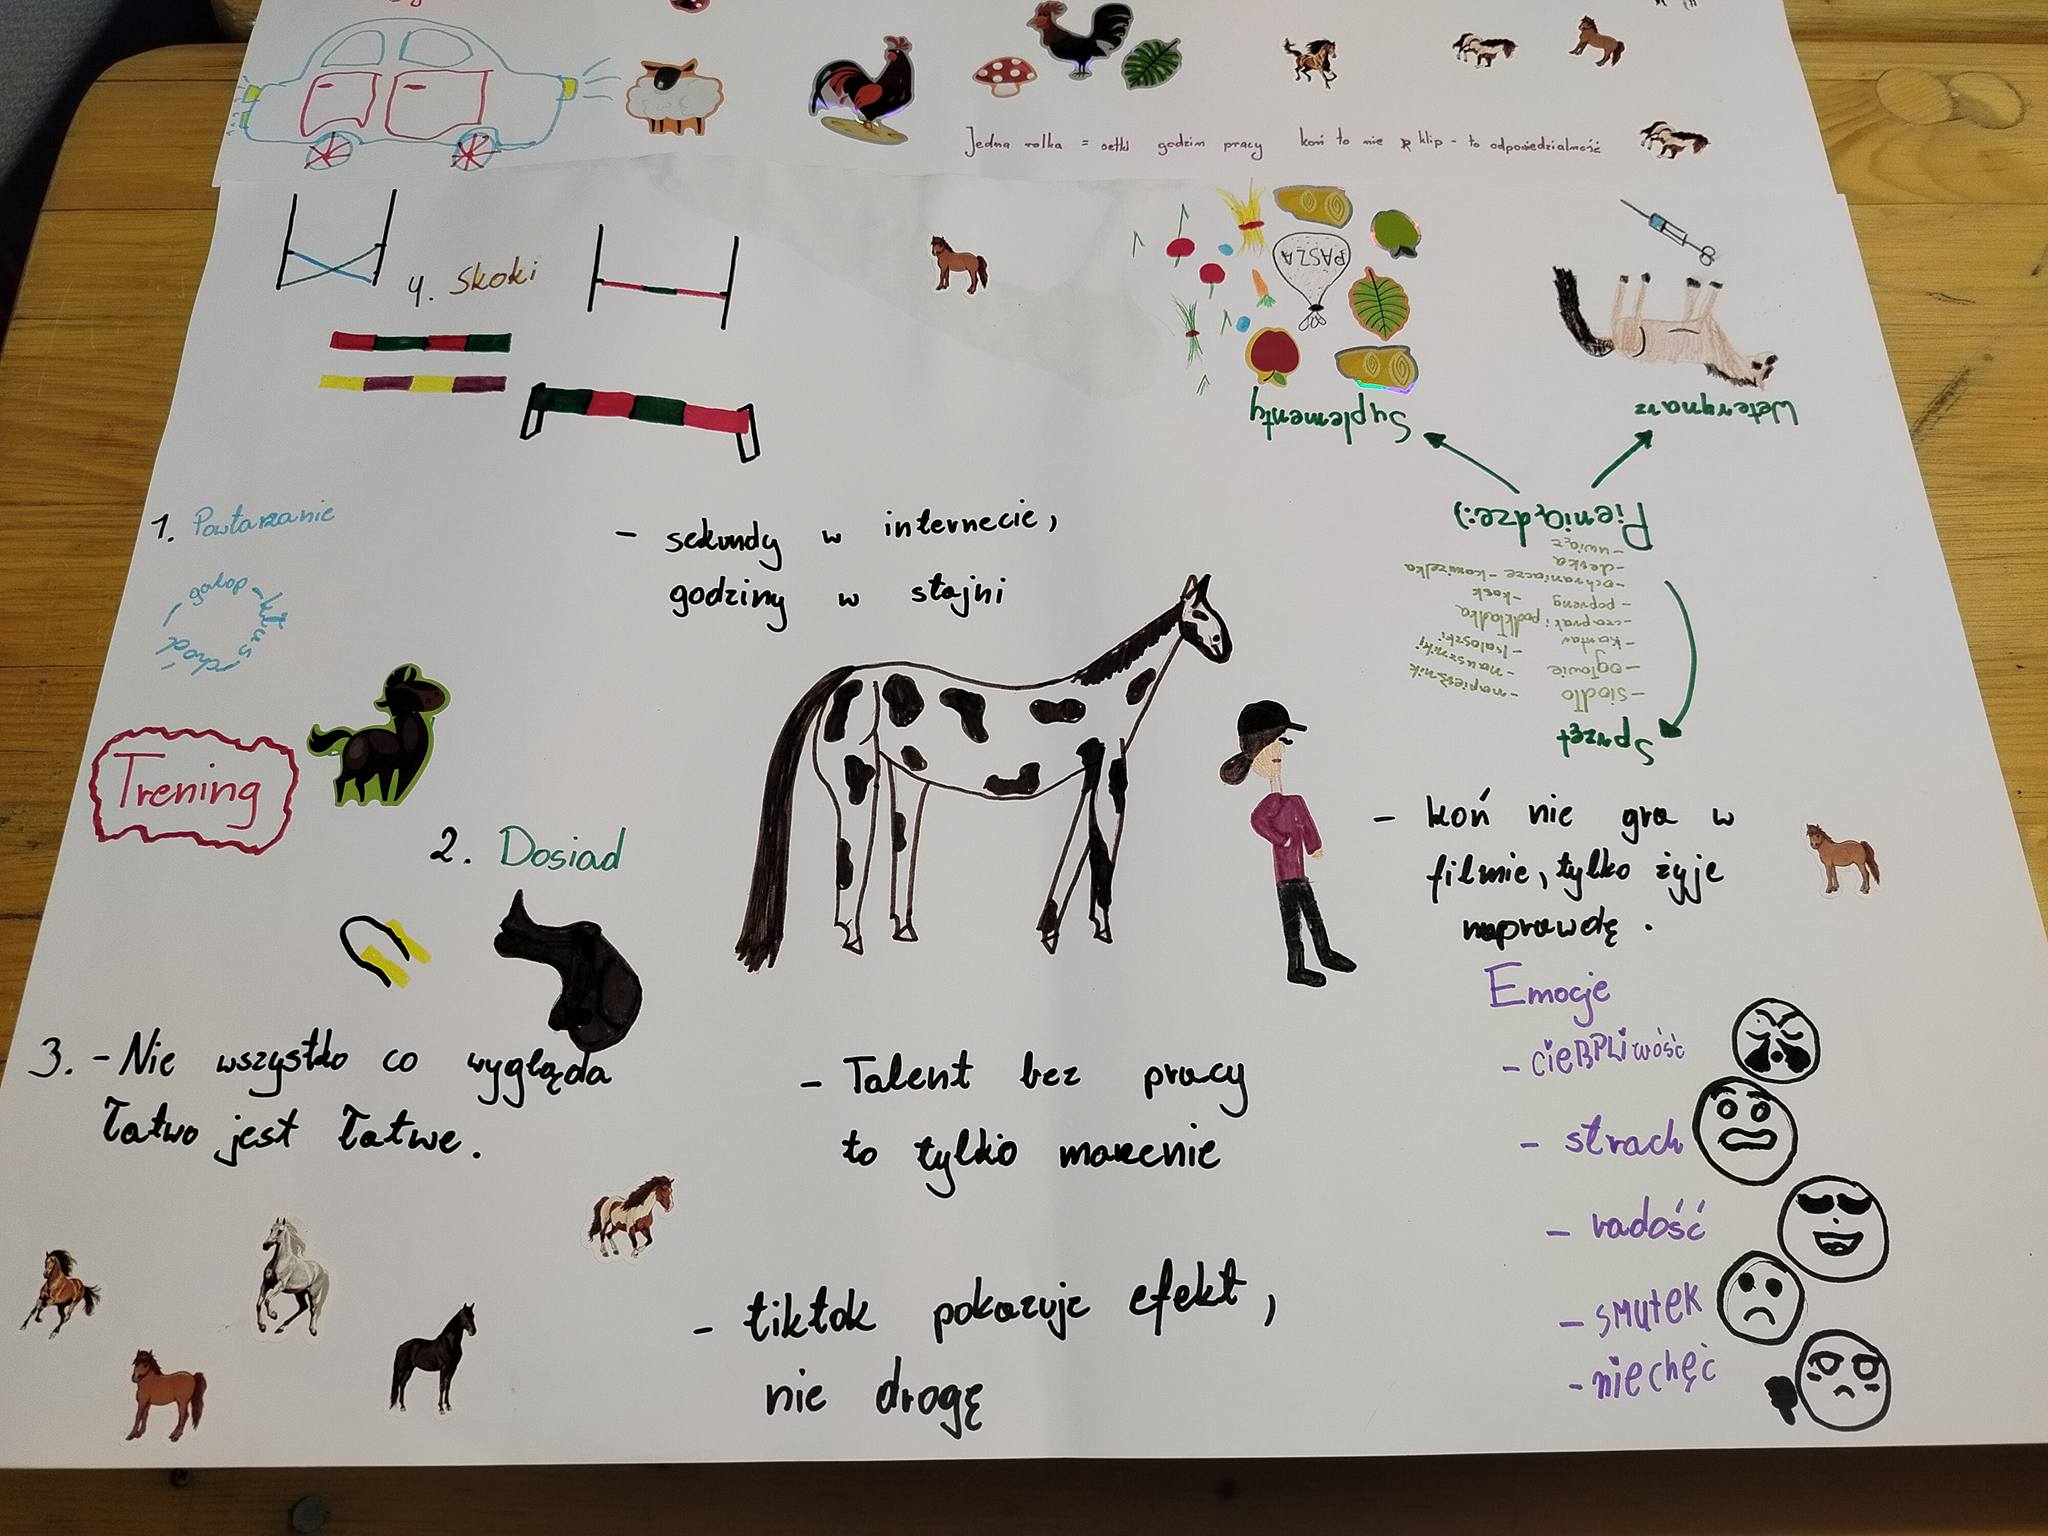 Jedna rolka = setki godzin pracy koń to nie klip - to odpowiedzialność
4. Skoki
PASZA
Suplementy
Weterynarz
Pieniądze:)
1. Powtarzanie
galop - kłus
- schod
- sekundy w internecie,
godziny w stajni
- uwiąz
- deska
- ochraniacze - kamizelka
- popreng - kask
- czaprak i podkładka
- kantar - kaloszki
- ogłowie - nauszniki
- siodło - napierśnik
Sprzęt
Trening
2. Dosiad
- koń nie gra w
filmie, tylko żyje
naprawdę.
Emocje
- cieRPLiwość
- strach
- radość
- sMutek
- niechęć
3. - Nie wszystko co wygląda
łatwo jest łatwe.
- Talent bez pracy
to tylko marzenie
- tiktok pokazuje efekt,
nie drogę